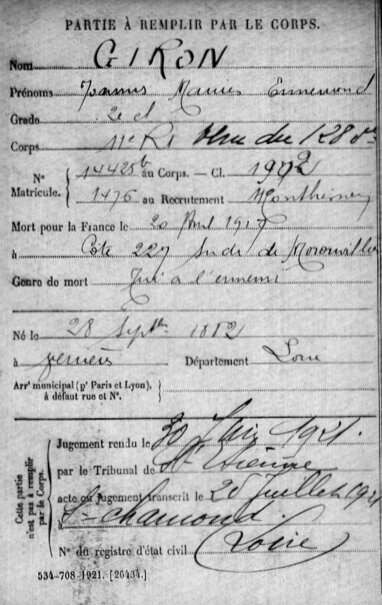 PARTIE À REMPLIR PAR LE CORPS.
Nom GIRON
Prénoms Joannus Marius Ennemond
Grade 2e cl
Corps 11e R.I. venu du 128e
N° 14425b au Corps. — Cl. 1902
Matricule. 1476 au Recrutement
Mort pour la France le 20 Avril 1917
à Côte 227 Sud de
Genre de mort Tué à l'ennemi
Né le 28 Septbre 1882
à Département Loire
Arrt municipal (pr Paris et Lyon),
à défaut rue et N°.
Cette partie
n'est pas à remplir
par le Corps.
Jugement rendu le 30 Juin 1921.
par le Tribunal de St Etienne
acte ou jugement transcrit le 20 Juillet 1921
à St Chamond.
N° du registre d'état civil (Loire)
534-708-1921. [26434.]